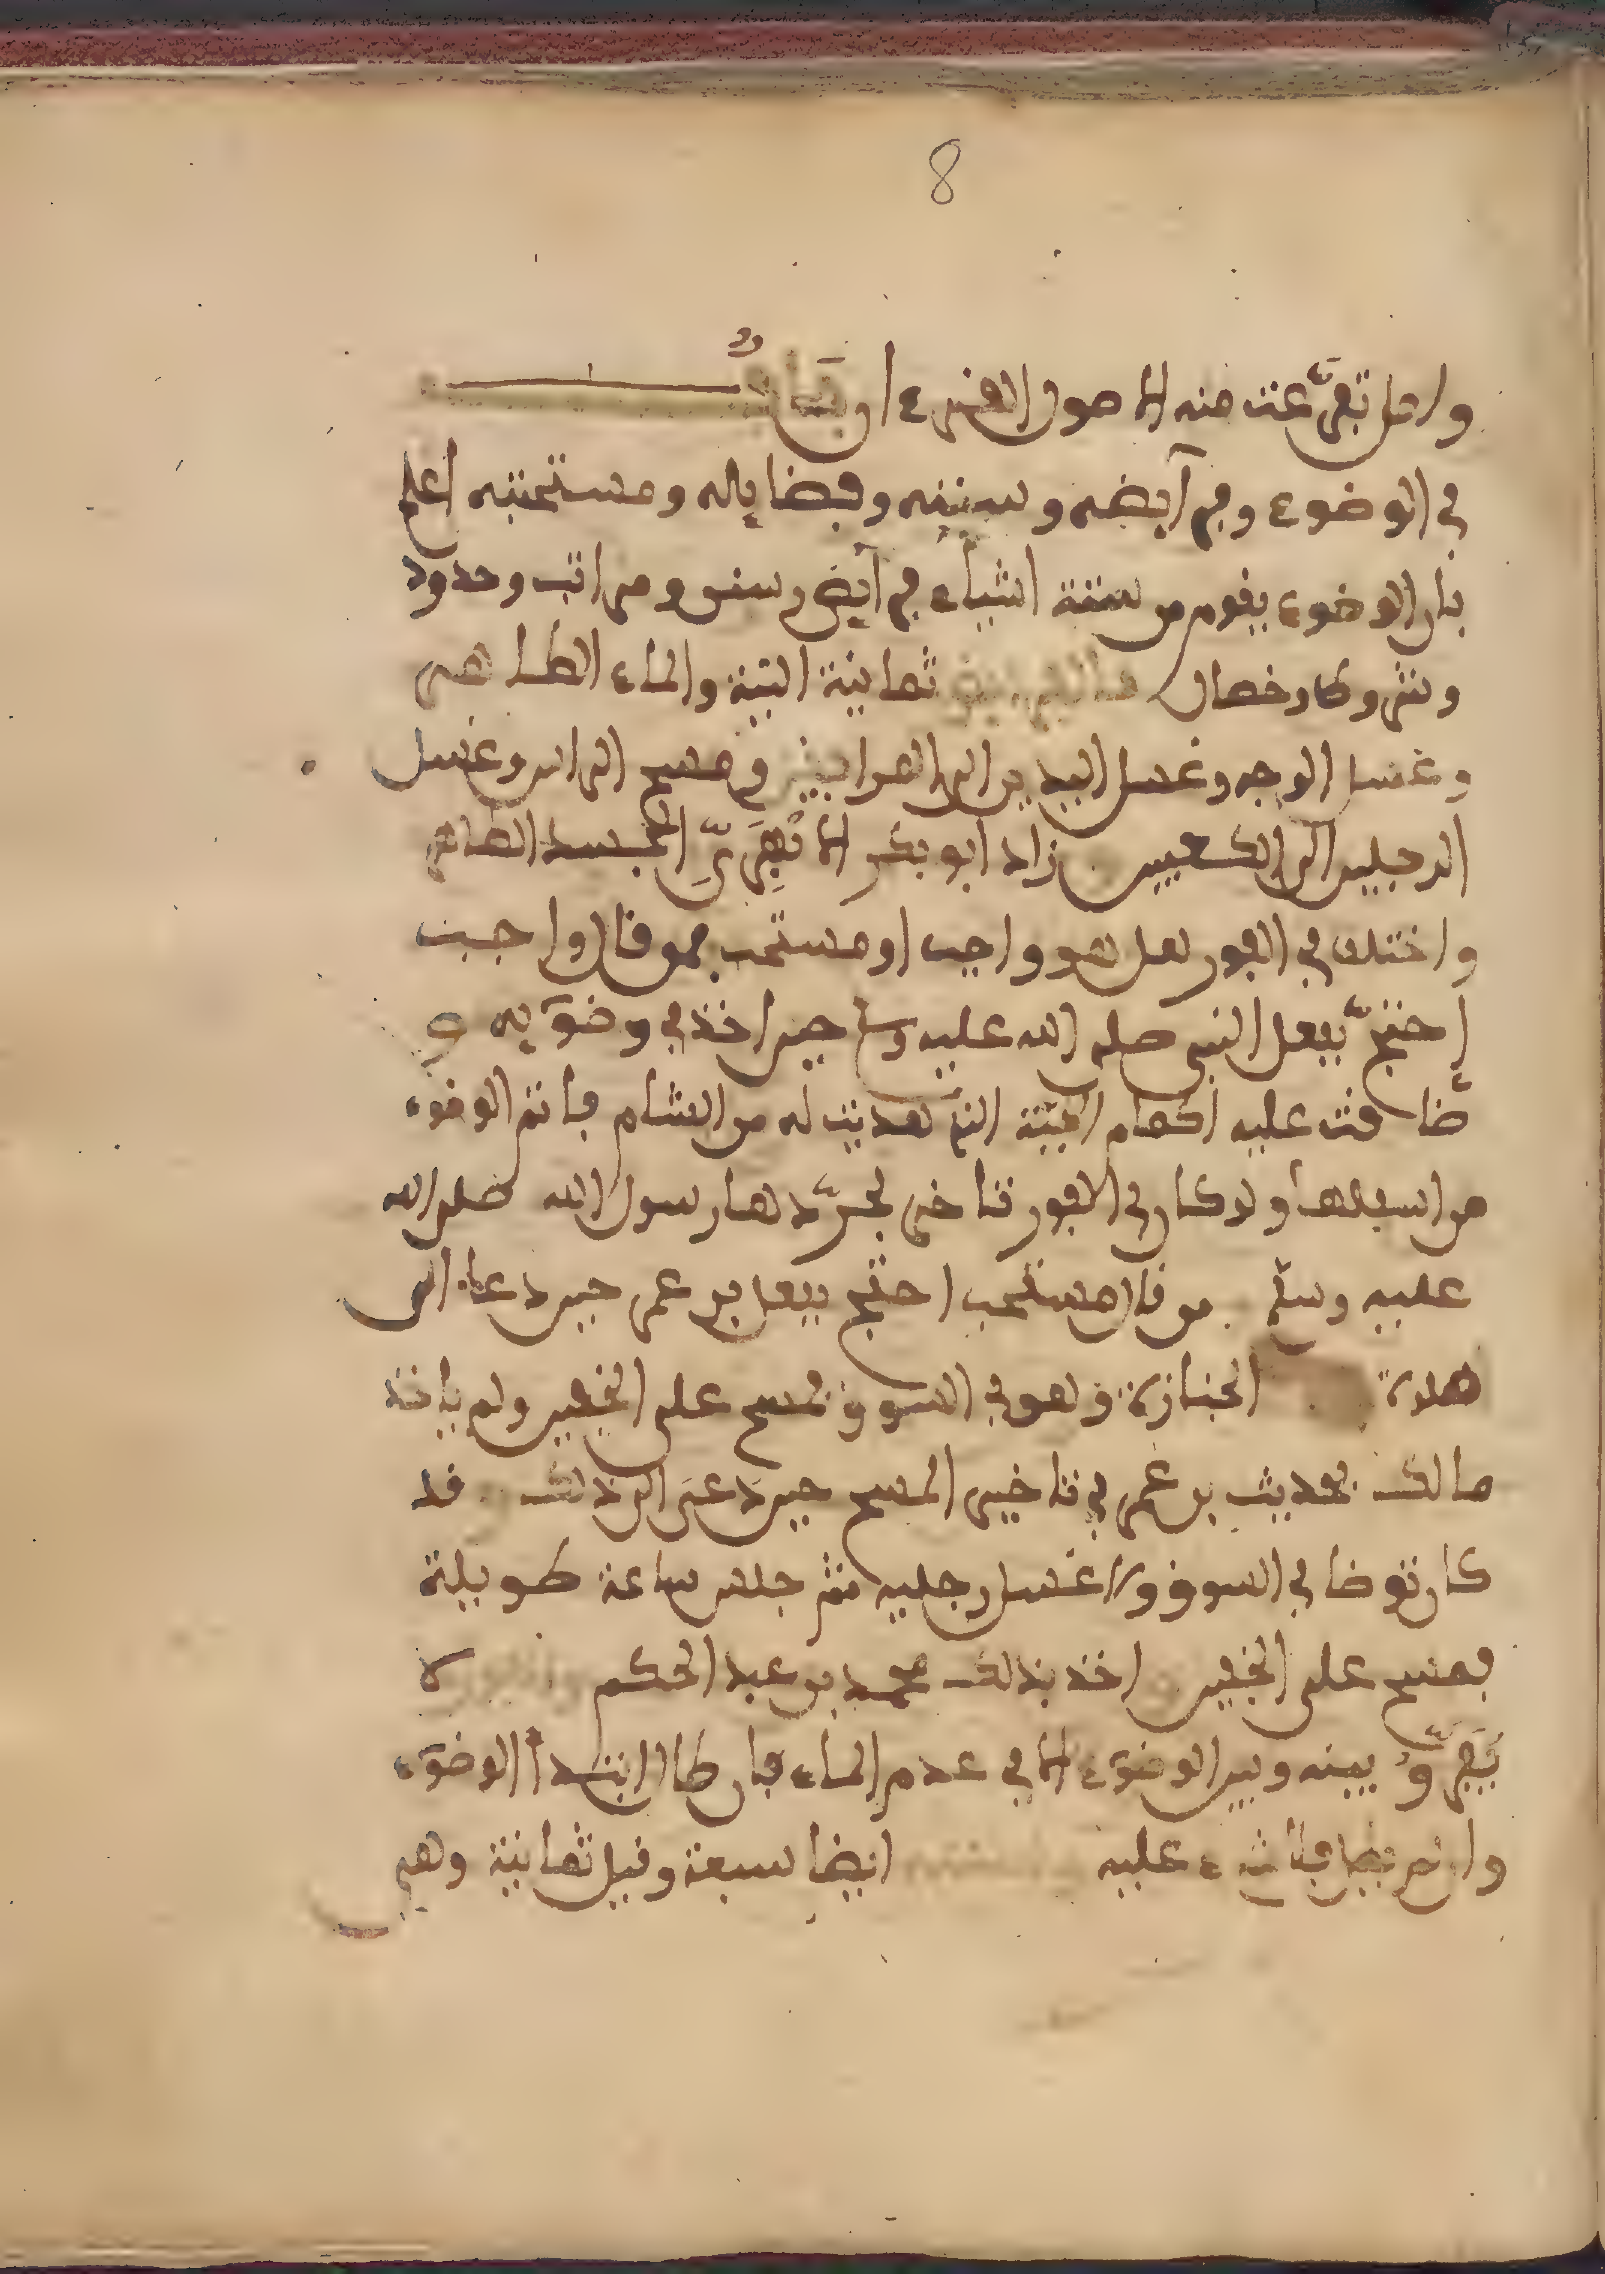 8
وان تفرّعت منه الاصول الفرع او
في الوضوء وفرآيضه وسننه وفضايله ومستحبته اعلم
بان الوضوء يقوم من ستة اشياء فرآيض وسنن ومراتب وحدود
وشروط وخصال ثمانية النية والماء الطاهر
وغسل الوجه وغسل اليدين الى المرافيين ومسح الراس وغسل
الرجلين الى الكعبين زاد ابو بكر الابهري الجسد الطاهر
واختلف في الفور هل هو واجب او مستحب فمو قال واجب
احتج بفعل النبي صلى الله عليه وسلم حين اخذ في وضوءيه و
ضاقت عليه اكمام الجبة التي هديت له من الشام فاتم الوضوء
من اسفلها ولو كان في الفور تاخر لجرّدها رسول الله صلى الله
عليه وسلم من قال مستحب احتج بفعل بن عمر حين دعا الى
صلاة الجنازة وهو في السوق فمسح على الخفين ولم ياخذ
مالك بحديث بن عمر في تاخير المسح حين دعى الى ذلك قد
كان توضا في السوق ولا غسل رجليه ثم جلس ساعة طويلة
فمسح على الخفين اخذ بذلك محمد بن عبد الحكم لا
يفرّق بينه وبين الوضوء الا في عدم الماء فان طال ابتدا الوضوء
وان فلا شيء عليه ايضا سبعة وقيل ثمانية وهي